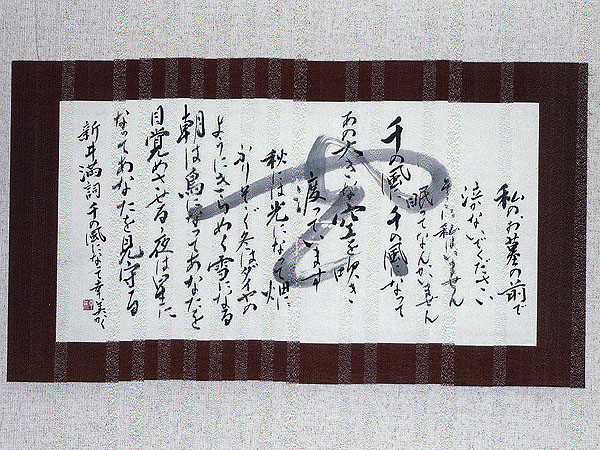 私のお墓の前で
泣かないでください
そこに私はいません
眠ってなんかいません
千の風に千の風になって
あの大きな空を吹き
渡っています
秋には光になって畑に
ふりそそぐ冬はダイヤの
ようにきらめく雪になる
朝は鳥になってあなたを
目覚めさせる夜は星に
なってあなたを見守る
新井満詞千の風になって